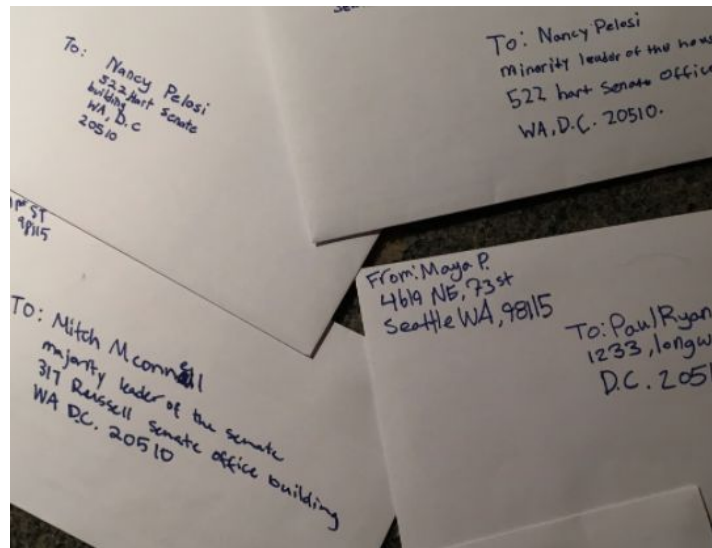 To: Nancy Pelosi
522 Hart Senate
building
WA, D.C
20510
To: Nancy Pelosi
minority leader of the
522 hart Senate Office
WA, D.C. 20510.
ST
98115
To: Mitch Mconnell
majority leader of the senate
317 Russell senate office building
WA D.C. 20510
From: Maya P.
4619 NE, 73st
Seattle WA, 98115
To: Paul Ryan
1233, longw
D.C. 2051